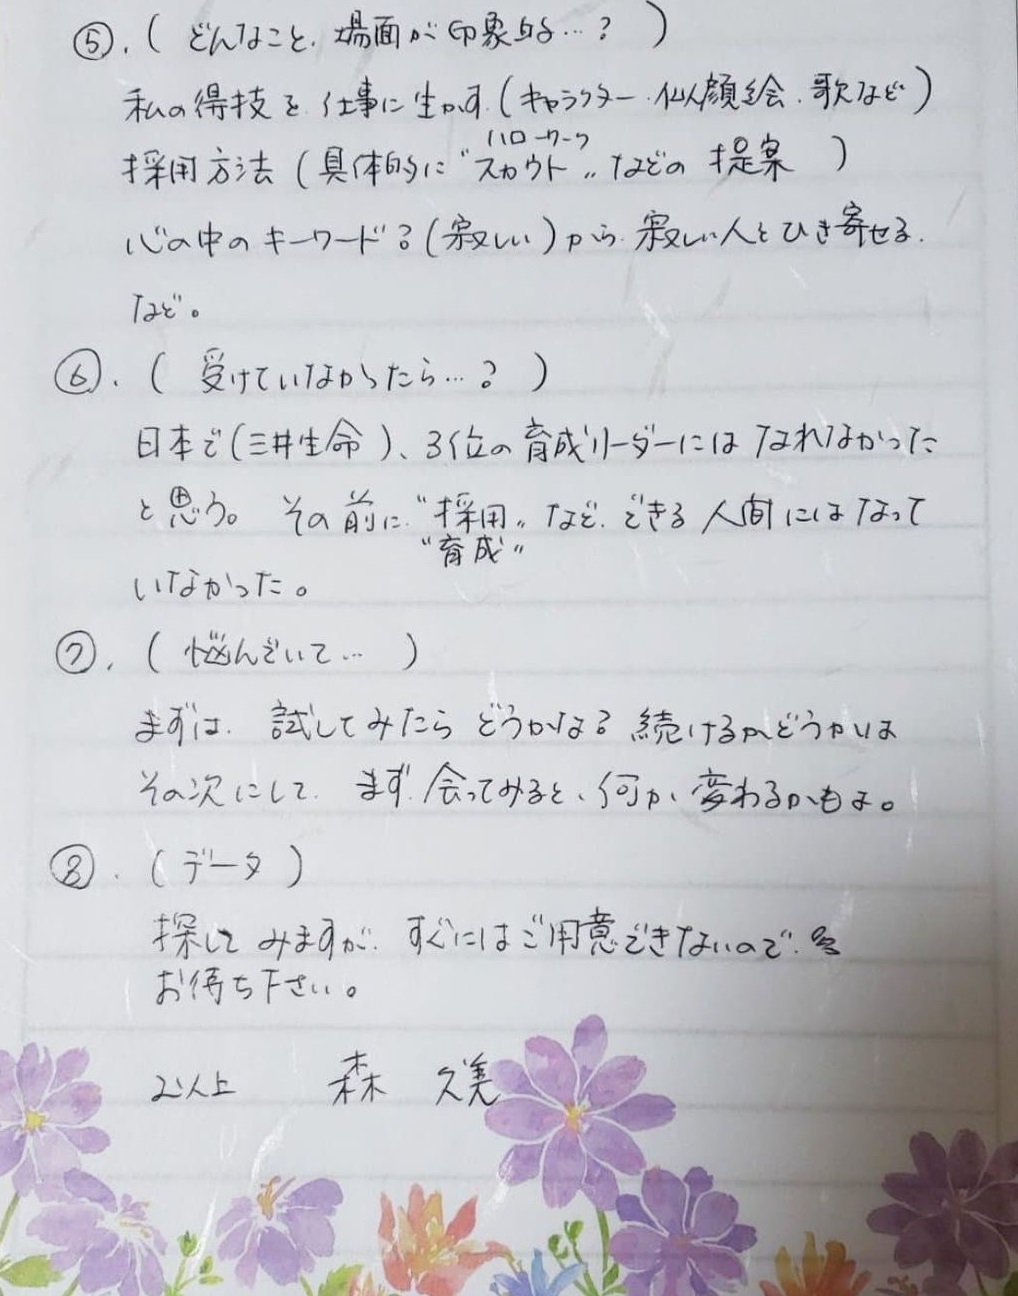 ⑤.( どんなこと、場面が印象的…? )
私の得技を、仕事に生かす.(キャラクター・似顔絵、歌など)
ハローワーク
採用方法(具体的に"スカウト〟などの提案 )
心の中のキーワード?(寂しい)から、寂しい人をひき寄せる.
など。
⑥.( 受けていなかったら…? )
日本で(三井生命)、3位の育成リーダーにはなれなかった
と思う。その前に、"採用〟など、できる人間にはなって
"育成"
いなかった。
⑦.( 悩んでいて… )
まずは、試してみたらどうかな?続けるかどうかは
その次にして、まず、会ってみると、何か、変わるかもよ。
⑧.(データ)
探してみますが、すぐにはご用意できないので、
お待ち下さい。
以上 森 久美